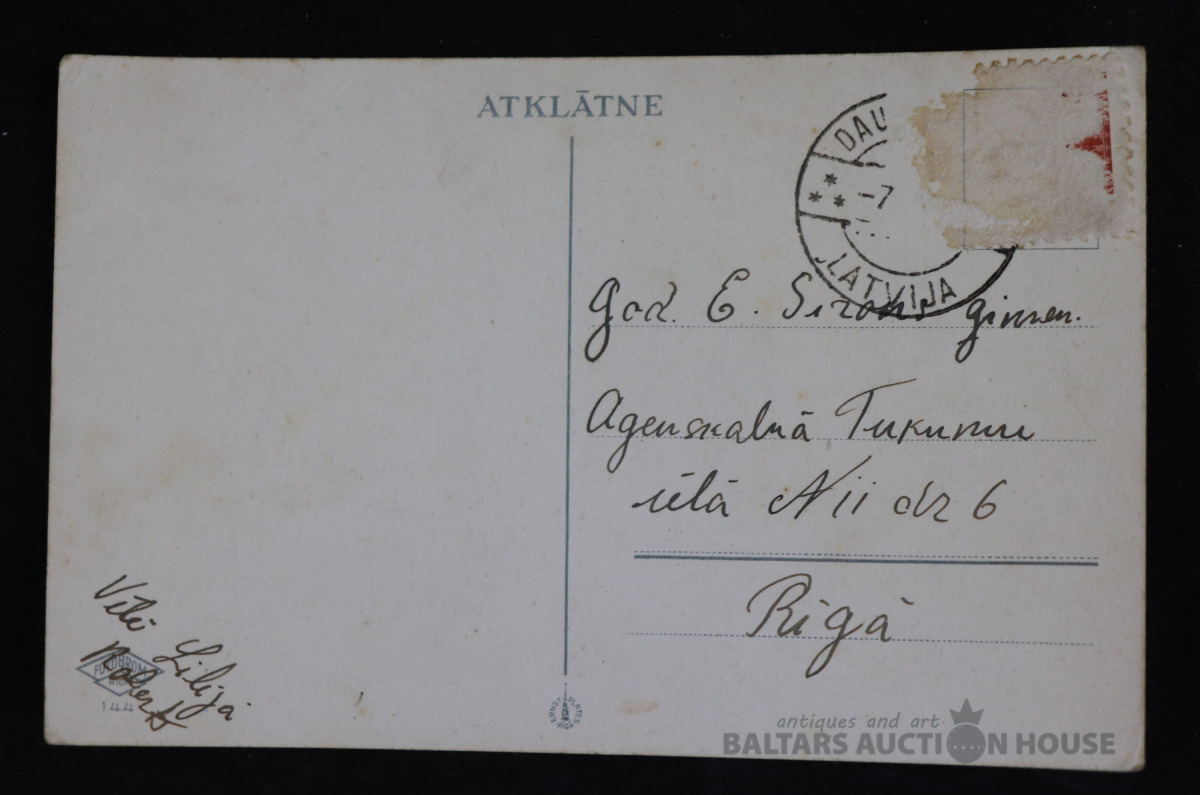 ATKLĀTNE
DAU
-7
LATVIJA
God. E. Sirons gimen.
Agenskalnā Tukumu
ielā N 11 dz 6
Rīgā
Vēlē Lilija
Robert
FOTOBROM
RIGA
144
ERNST PLATES
antiques and art
BALTARS AUCTION HOUSE